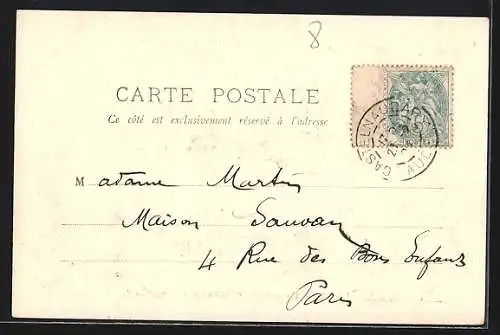 8
CARTE POSTALE
Ce côté est exclusivement réservé à l'adresse
CASTELNAUDARY
AUDE
Madame Martin
Maison Sauvan
4 Rue des Bons Enfants
Paris